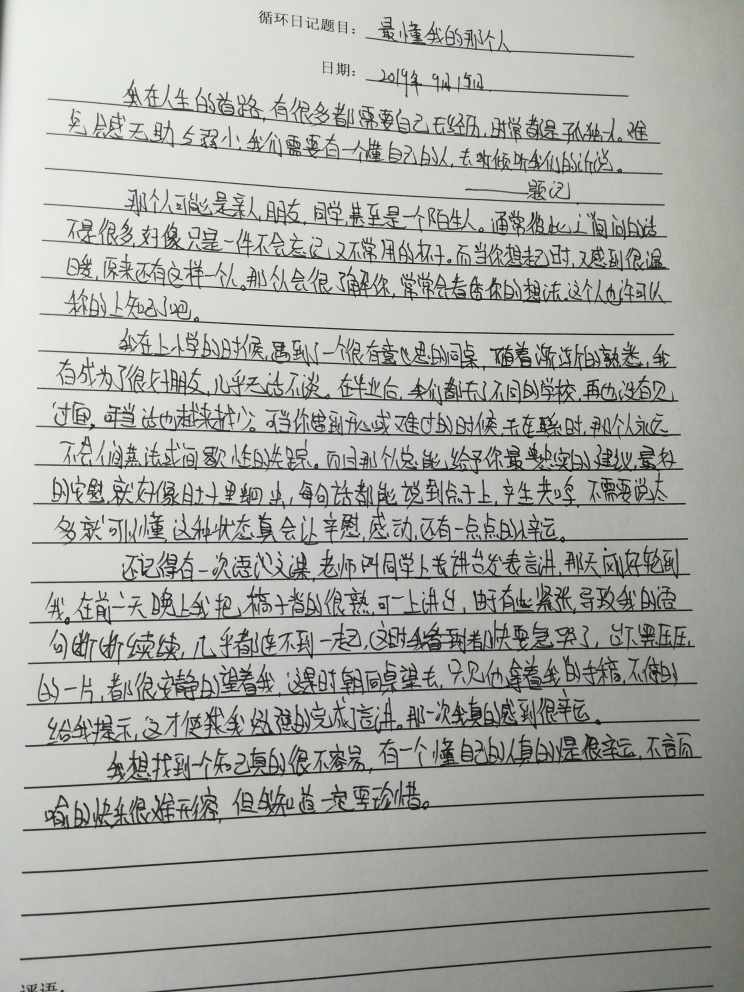 循环日记题目：最懂我的那个人
日期：2019年9月15日
我在人生的道路，有很多都需要自己去经历，时常都是孤独一人。难
免会感无助与弱小；我们需要有一个懂自己的人，去听倾听我们的诉说。
——题记
那个人可能是亲人，朋友，同学，甚至是一个陌生人。通常彼此之间问的话
不是很多，好像只是一件不会忘记，又不常用的杯子。而当你想起时，又感到很温
暖，原来还有这样一个人。那个人会很了解你，常常会看香你的想法，这个人也许可以
称的上知己了吧。
我在上小学的时候，遇到了一个很有意思的同桌，随着渐渐的熟悉，我
存成为了很好朋友，几乎无话不谈。在毕业后，我们都去了不同的学校，再也没有见
过面，可当话也越来越少。可当你遇到开心或难过的时候，去在联系时，那个人永远
不会人间蒸法或间歇性的失踪。而且那个人总能给予你最忠实的建议，最好
的安慰，就好像日子里细出，每句话都能说到点子上，产生共鸣，不需要说太
多就可以懂，这种状态真会让辛慰，感动，还有一点点的辛运。
还记得有一次语文课，老师叫同学上去讲台发表言讲，那天刚好轮到
我。在前一天晚上我把稿子背的很熟，可一上讲台，由于有些紧张，导致我的语
句断断续续，几乎都连不到一起，这时我看到都快要急哭了，台下黑压压
的一片，都很安静的望着我，这时朝同桌望去，只见他拿着我的手稿，不停的
给我提示，这才使我勉强的完成了言讲。那一次我真的感到很辛运。
我想找到一个知己真的很不容易，有一个懂自己的人真的是很辛运，不言而
喻的快乐很难形容，但我知道一定要珍惜。
评语：